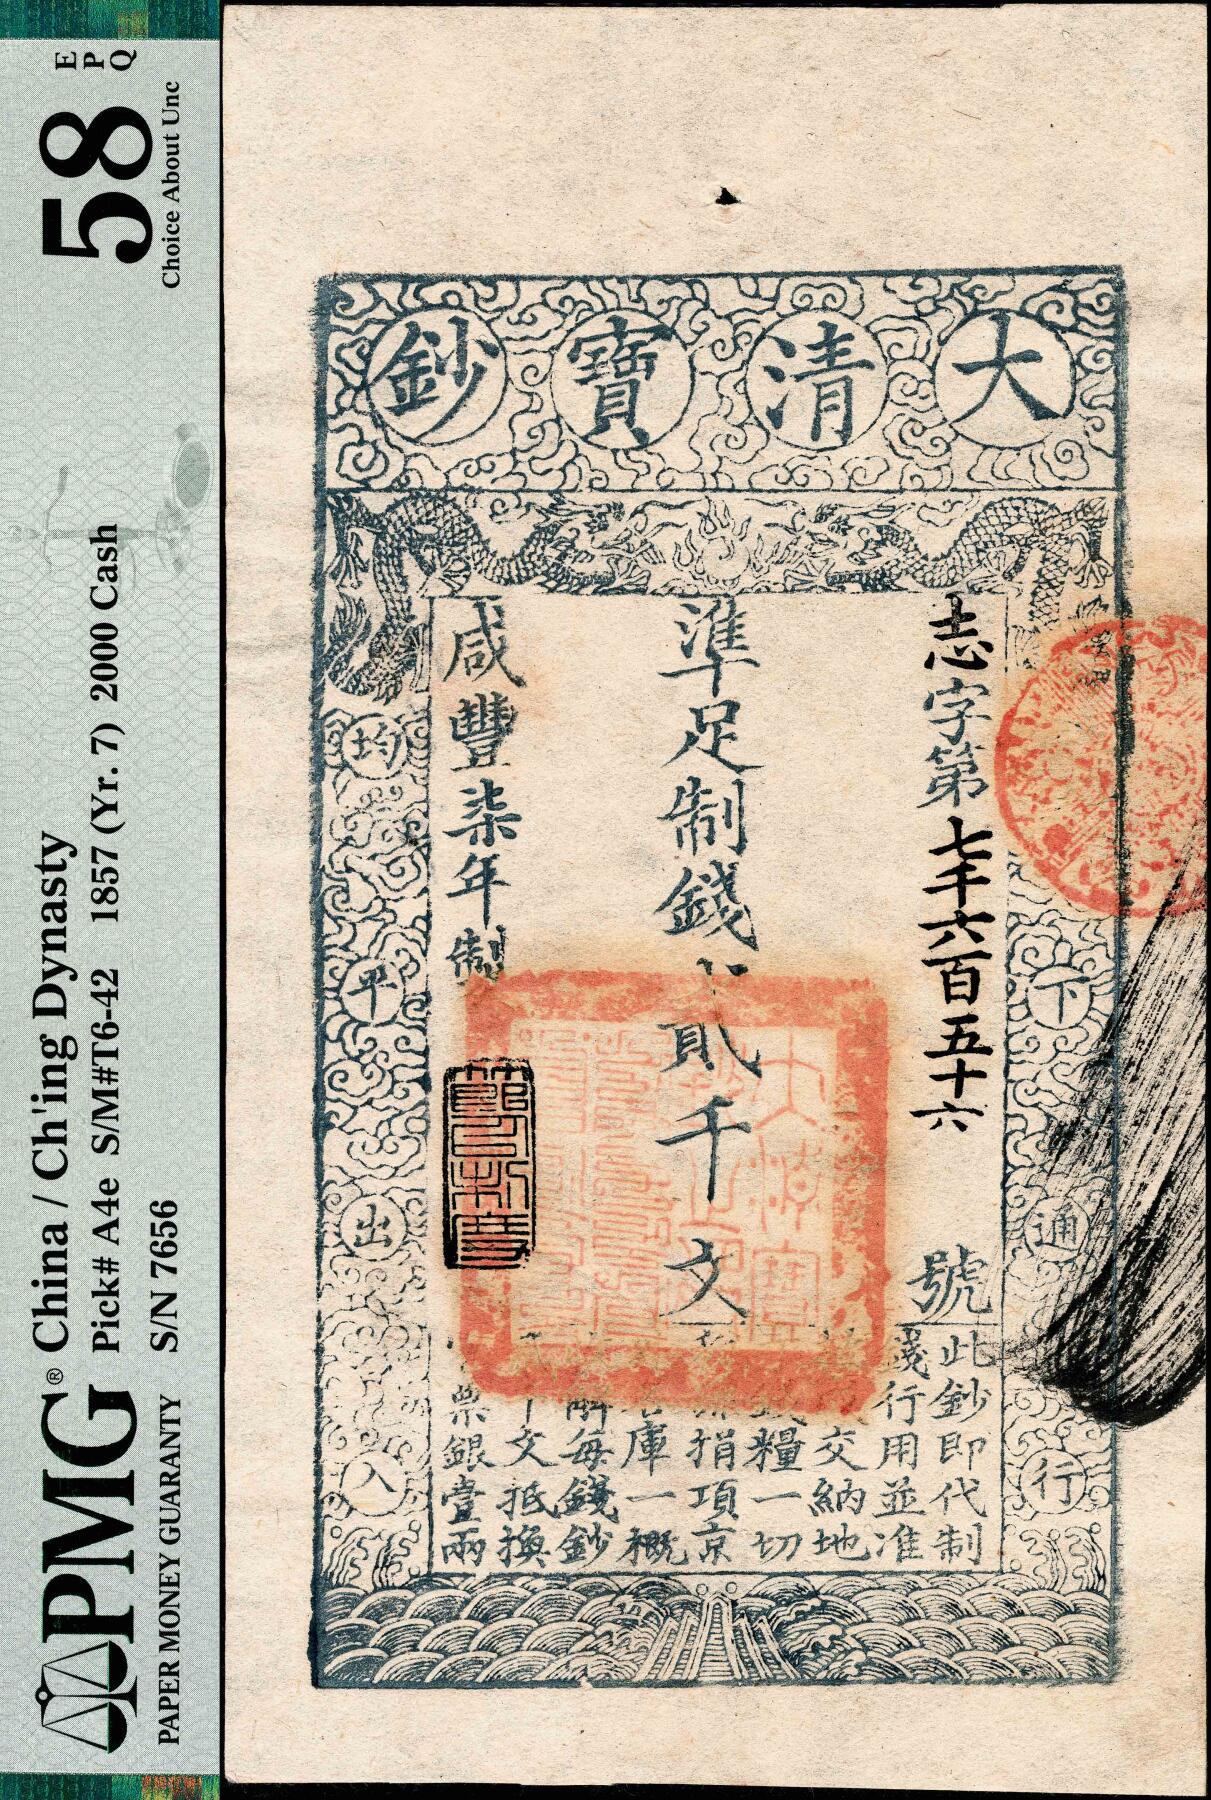 PMG® China / Ch'ing Dynasty
Pick# A4e S/M#T6-42 1857 (Yr. 7) 2000 Cash
PAPER MONEY GUARANTY S/N 7656
58 EPQ
Choice About Unc
大清寶鈔
志字第七千六百五十六號
準足制錢貳千文
咸豐柒年制
下通行
均平出入
此鈔即代制
錢行用並准
交納地
錢糧一切
捐項京
庫一概
解每錢鈔
文抵換
票銀壹兩